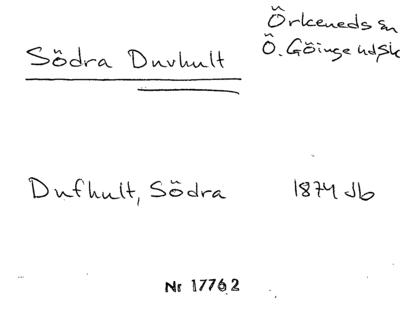 Örkeneds sn
Södra Duvhult Ö. Göinge hd, Sk
Dufhult, Södra 1874 Jb
Nr 17762